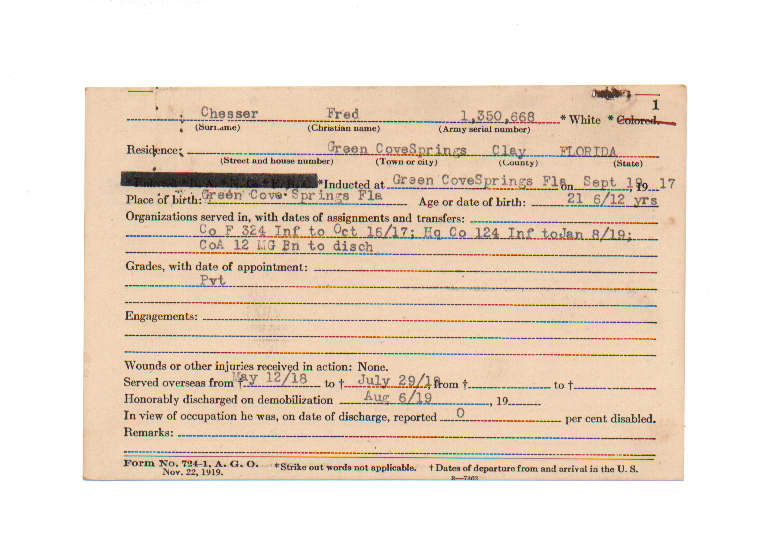 1
Chesser Fred 1,350,668 * White * Colored.
(Surname) (Christian name) (Army serial number)
Residence: Green CoveSprings Clay FLORIDA
(Street and house number) (Town or city) (County) (State)
*Inducted at Green CoveSprings Fla on Sept 19, 1917
Place of birth: Green Cove Springs Fla Age or date of birth: 21 6/12 yrs
Organizations served in, with dates of assignments and transfers:
Co F 324 Inf to Oct 16/17; Hq Co 124 Inf toJan 8/19;
CoA 12 MG Bn to disch
Grades, with date of appointment:
Pvt
Engagements:
Wounds or other injuries received in action: None.
Served overseas from † May 12/18 to † July 29/19 from † to †
Honorably discharged on demobilization Aug 6/19 , 19
In view of occupation he was, on date of discharge, reported 0 per cent disabled.
Remarks:
Form No. 724-1, A. G. O. *Strike out words not applicable. † Dates of departure from and arrival in the U. S.
Nov. 22, 1919.